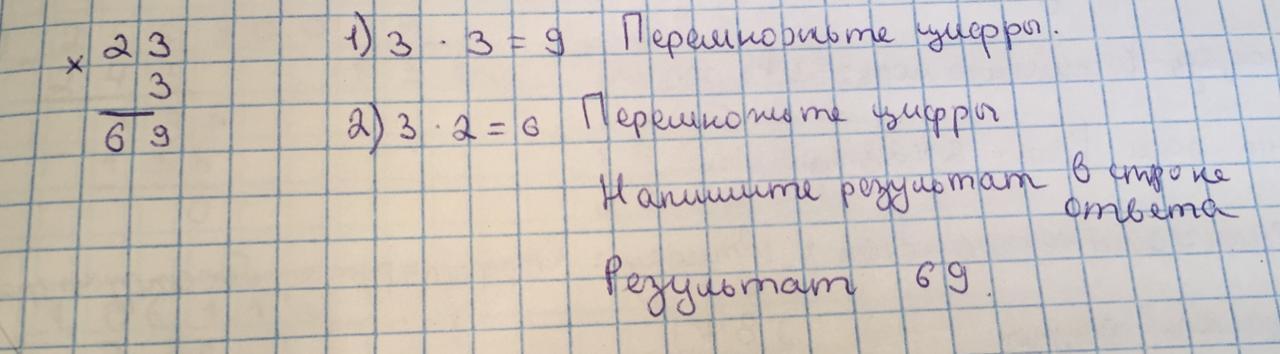 23
× 3
69
1) 3 · 3 = 9 Перемножьте цифры.
2) 3 · 2 = 6 Перемножьте цифры
Напишите результат в строке
ответа
Результат 69.